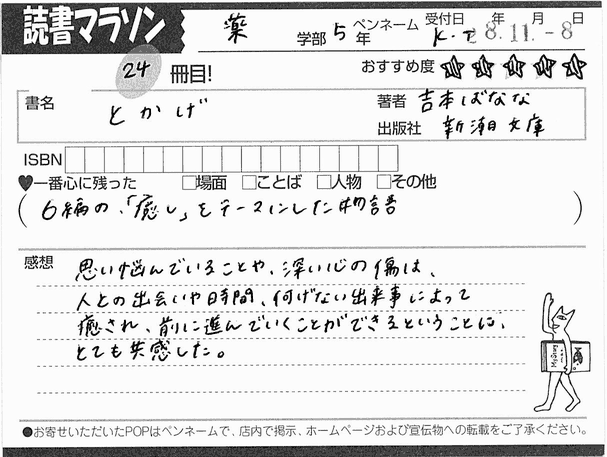 読書マラソン
薬 学部 5年 ペンネーム K.T 受付日 8年11月-8日
24 冊目!
おすすめ度 ☆☆☆☆☆
書名 とかげ
著者 吉本ばなな
出版社 新潮文庫
ISBN
♥一番心に残った □場面 □ことば □人物 □その他
(6編の、「癒し」をテーマにした物語)
感想 思い悩んでいることや、深い心の傷は、
人との出会いや時間、何げない出来事によって
癒され、前に進んでいくことができるということに、
とても共感した。
●お寄せいただいたPOPはペンネームで、店内で掲示、ホームページおよび宣伝物への転載をご了承ください。